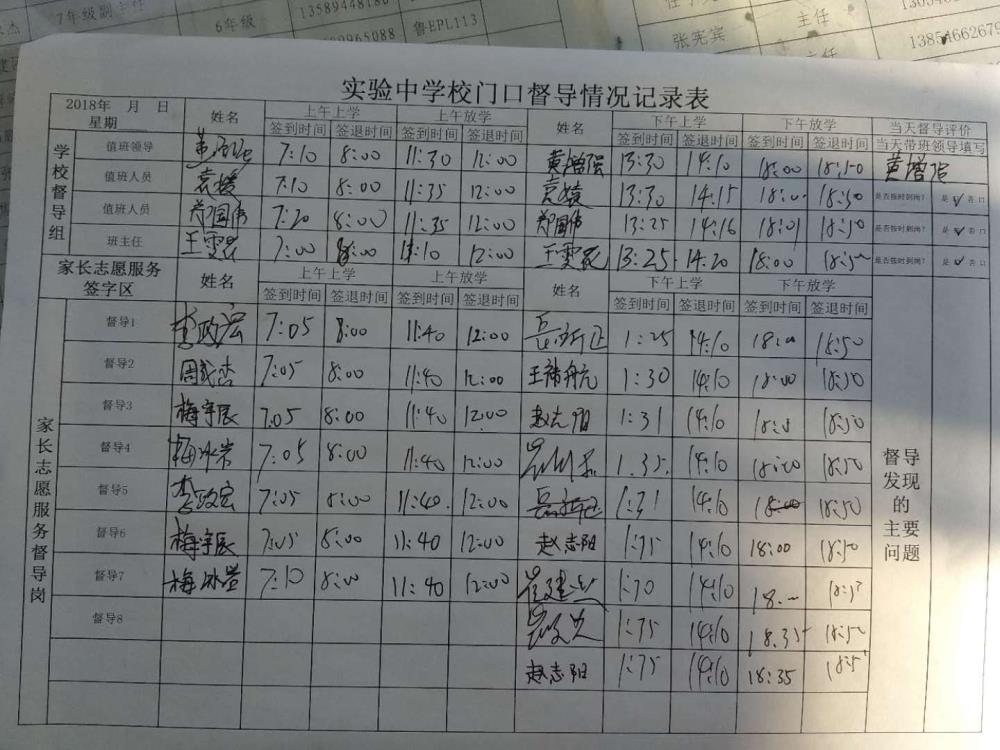 7年级副主任
6年级
13589448180
965088
鲁EPL113
主任
张宪宾
主任
13854662679
实验中学校门口督导情况记录表
2018年 月 日
星期
姓名 上午上学 上午放学 姓名 下午上学 下午放学 当天督导评价
签到时间 签退时间 签到时间 签退时间 签到时间 签退时间 签到时间 签退时间 当天带班领导填写
学校督导组
值班领导 7:10 8:00 11:30 12:00 黄增强 13:30 14:10 18:00 18:50 黄增强
值班人员 袁媛 7:10 8:00 11:35 12:00 袁媛 13:30 14:15 18:00 18:50 是否按时到岗? 是 ✓ 否 口
值班人员 郑国伟 7:20 8:00 11:35 12:00 郑国伟 13:25 14:16 18:01 18:50 是否按时到岗? 是 ✓ 否 口
班主任 王雯 7:00 8:00 11:10 12:00 王雯 13:25 14:20 18:00 是否按时到岗? 是 ✓ 否 口
家长志愿服务
签字区
姓名 上午上学 上午放学 姓名 下午上学 下午放学
签到时间 签退时间 签到时间 签退时间 签到时间 签退时间 签到时间 签退时间
家长志愿服务督导岗
督导1 李政宏 7:05 8:00 11:40 12:00 岳 1:25 14:10 18:00 18:50
督导2 周 7:05 8:00 11:40 12:00 王祎航 1:30 14:10 18:00 18:50
督导3 梅宇辰 7:05 8:00 11:40 12:00 赵志阳 1:31 14:10 18:50
督导4 梅冰 7:05 8:00 11:40 12:00 1:35 14:10 18:00 18:50
督导5 李政宏 7:05 8:00 11:40 12:00 岳 1:31 14:10 18:00 18:50
督导6 梅宇辰 7:05 8:00 11:40 12:00 赵志阳 14:10 18:00 18:50
督导7 梅冰 7:10 8:00 11:40 12:00 14:10
督导8 14:10 18:35 18:50
赵志阳 14:10 18:35
督导
发现
的
主要
问题